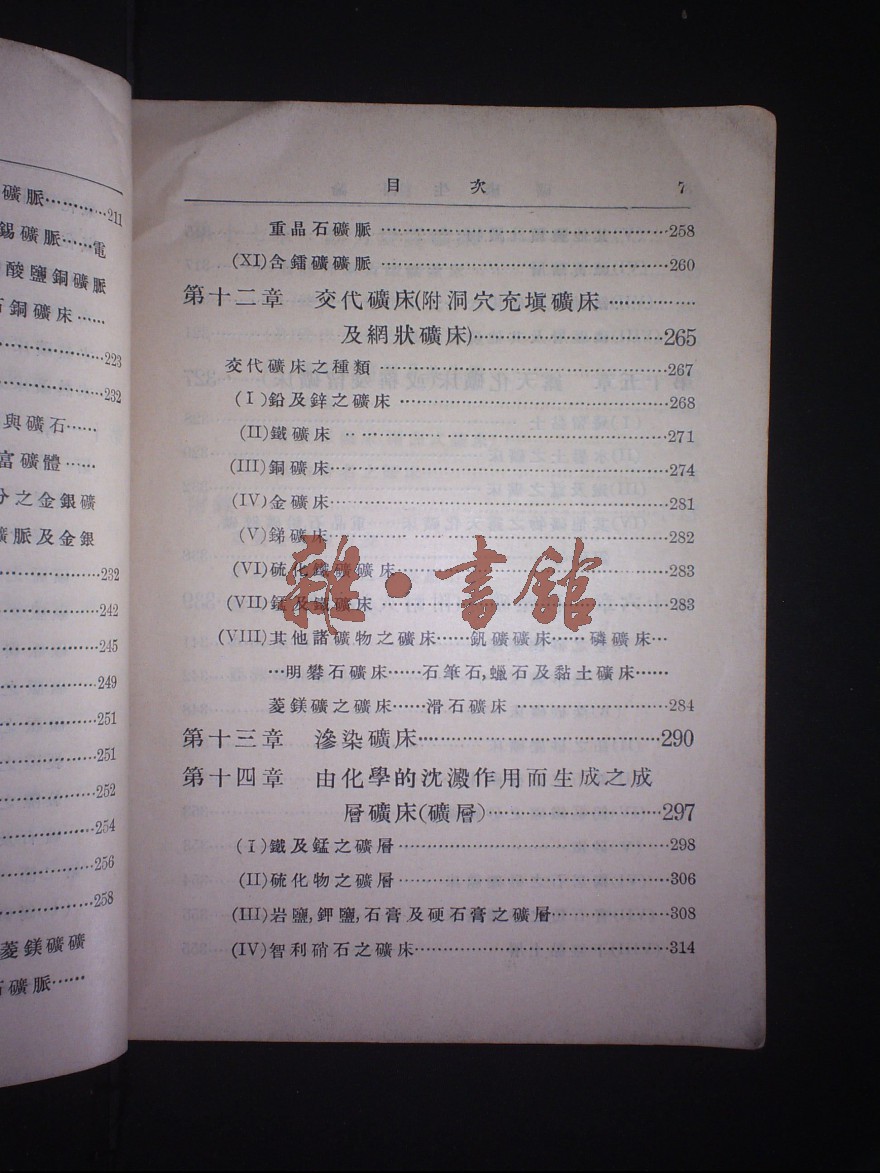 礦脈…………211
錫礦脈……電
酸鹽銅礦脈
石銅礦床……
223
232
與礦石……
富礦體……
分之金銀礦
礦脈及金銀
232
242
245
249
251
251
252
254
256
258
菱鎂礦礦
石礦脈……
目 次 7
重晶石礦脈…………258
(XI)含鐳礦礦脈…………260
第十二章 交代礦床(附洞穴充塡礦床…………
及網狀礦床)…………265
交代礦床之種類…………267
(I)鉛及鋅之礦床…………268
(II)鐵礦床…………271
(III)銅礦床…………274
(IV)金礦床…………281
(V)銻礦床…………282
(VI)硫化鐵礦礦床…………283
(VII)錳及鐵礦床…………283
(VIII)其他諸礦物之礦床……釩礦礦床……磷礦床…
…明礬石礦床……石筆石,蠟石及黏土礦床……
菱鎂礦之礦床……滑石礦床…………284
第十三章 滲染礦床…………290
第十四章 由化學的沈澱作用而生成之成
層礦床(礦層)…………297
(I)鐵及錳之礦層…………298
(II)硫化物之礦層…………306
(III)岩鹽,鉀鹽,石膏及硬石膏之礦層…………308
(IV)智利硝石之礦床…………314
雜·書館